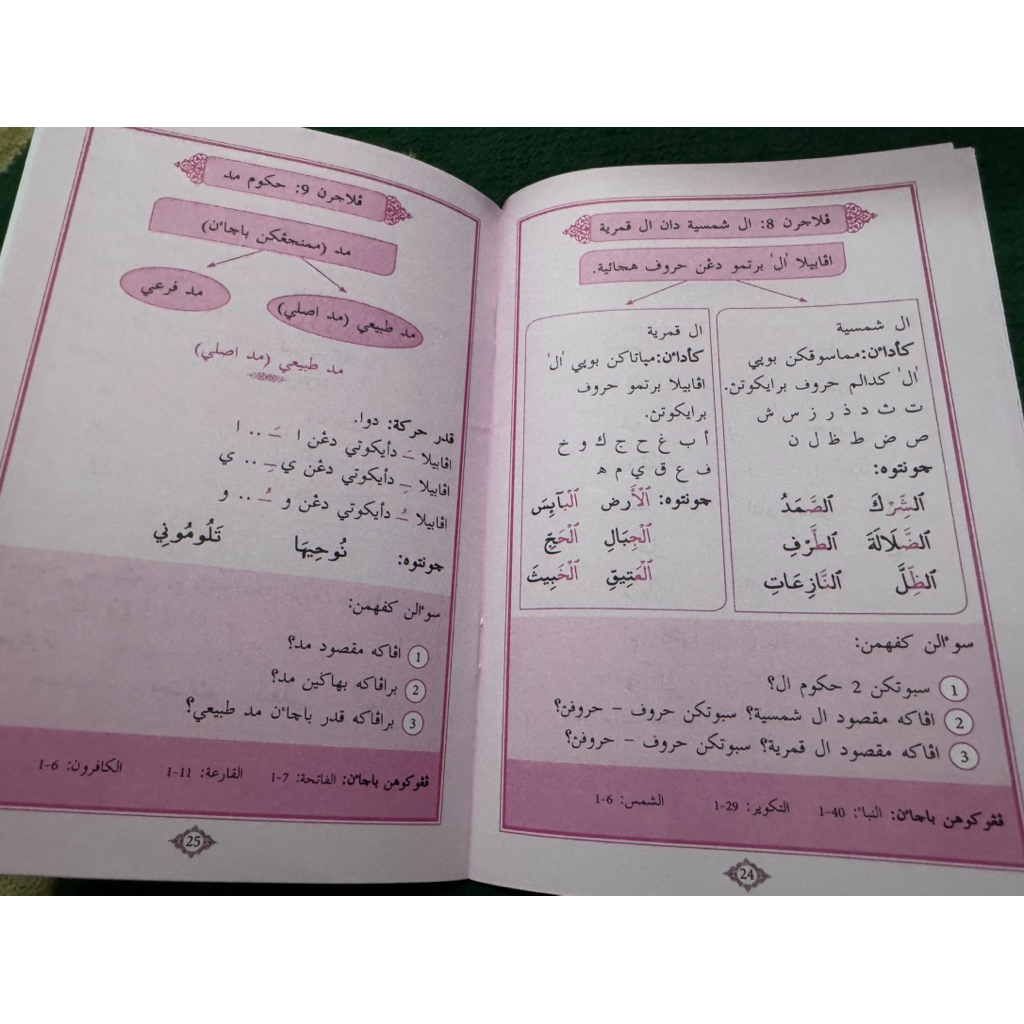 ڤلاجرن 8: ال شمسية دان ال قمرية
اڤابيلا 'ال' برتمو دڠن حروف هجائية.
ال شمسية
كأداءن: مماسوقكن بوڽي
'ال' كدالم حروف برايكوتن.
ت ث د ذ ر ز س ش
ص ض ط ظ ل ن
چونتوه:
ٱلشِّرْكَ ٱلصَّمَدُ
ٱلضَّلَالَةَ ٱلطَّرْفِ
ٱلظِّلَّ ٱلنَّازِعَاتِ
ال قمرية
كأداءن: مڽاتاكن بوڽي 'ال'
اڤابيلا برتمو حروف
برايكوتن.
أ ب غ ح ج ك و خ
ف ع ق ي م ه
چونتوه: ٱلْأَرض ٱلْبَآئِسَ
ٱلْجِبَالِ ٱلْحَجّ
ٱلْعَتِيقِ ٱلْخَبِيثَ
سوءالن كفهمن:
1 سبوتكن 2 حكوم ال؟
2 اڤاكه مقصود ال شمسية؟ سبوتكن حروف – حروفڽ؟
3 اڤاكه مقصود ال قمرية؟ سبوتكن حروف – حروفڽ؟
ڤڠوكوهن باچاءن: النبأ: 40-1 التكوير: 29-1 الشمس: 6-1
24
ڤلاجرن 9: حكوم مد
مد (ممنجڠكن باچاءن)
مد طبيعي (مد اصلي)
مد فرعي
مد طبيعي (مد اصلي)
قدر حركة: دوا.
اڤابيلا ـَ دأيكوتي دڠن ا ـَ .. ا
اڤابيلا ـِ دأيكوتي دڠن ي ـِ .. ي
اڤابيلا ـُ دأيكوتي دڠن و ـُ .. و
چونتوه: نُوحِيهَا تَلُومُونِي
سوءالن كفهمن:
1 اڤاكه مقصود مد؟
2 براڤاكه بهاڬين مد؟
3 براڤاكه قدر باچاءن مد طبيعي؟
ڤڠوكوهن باچاءن: الفاتحة: 7-1 القارعة: 11-1 الكافرون: 6-1
25